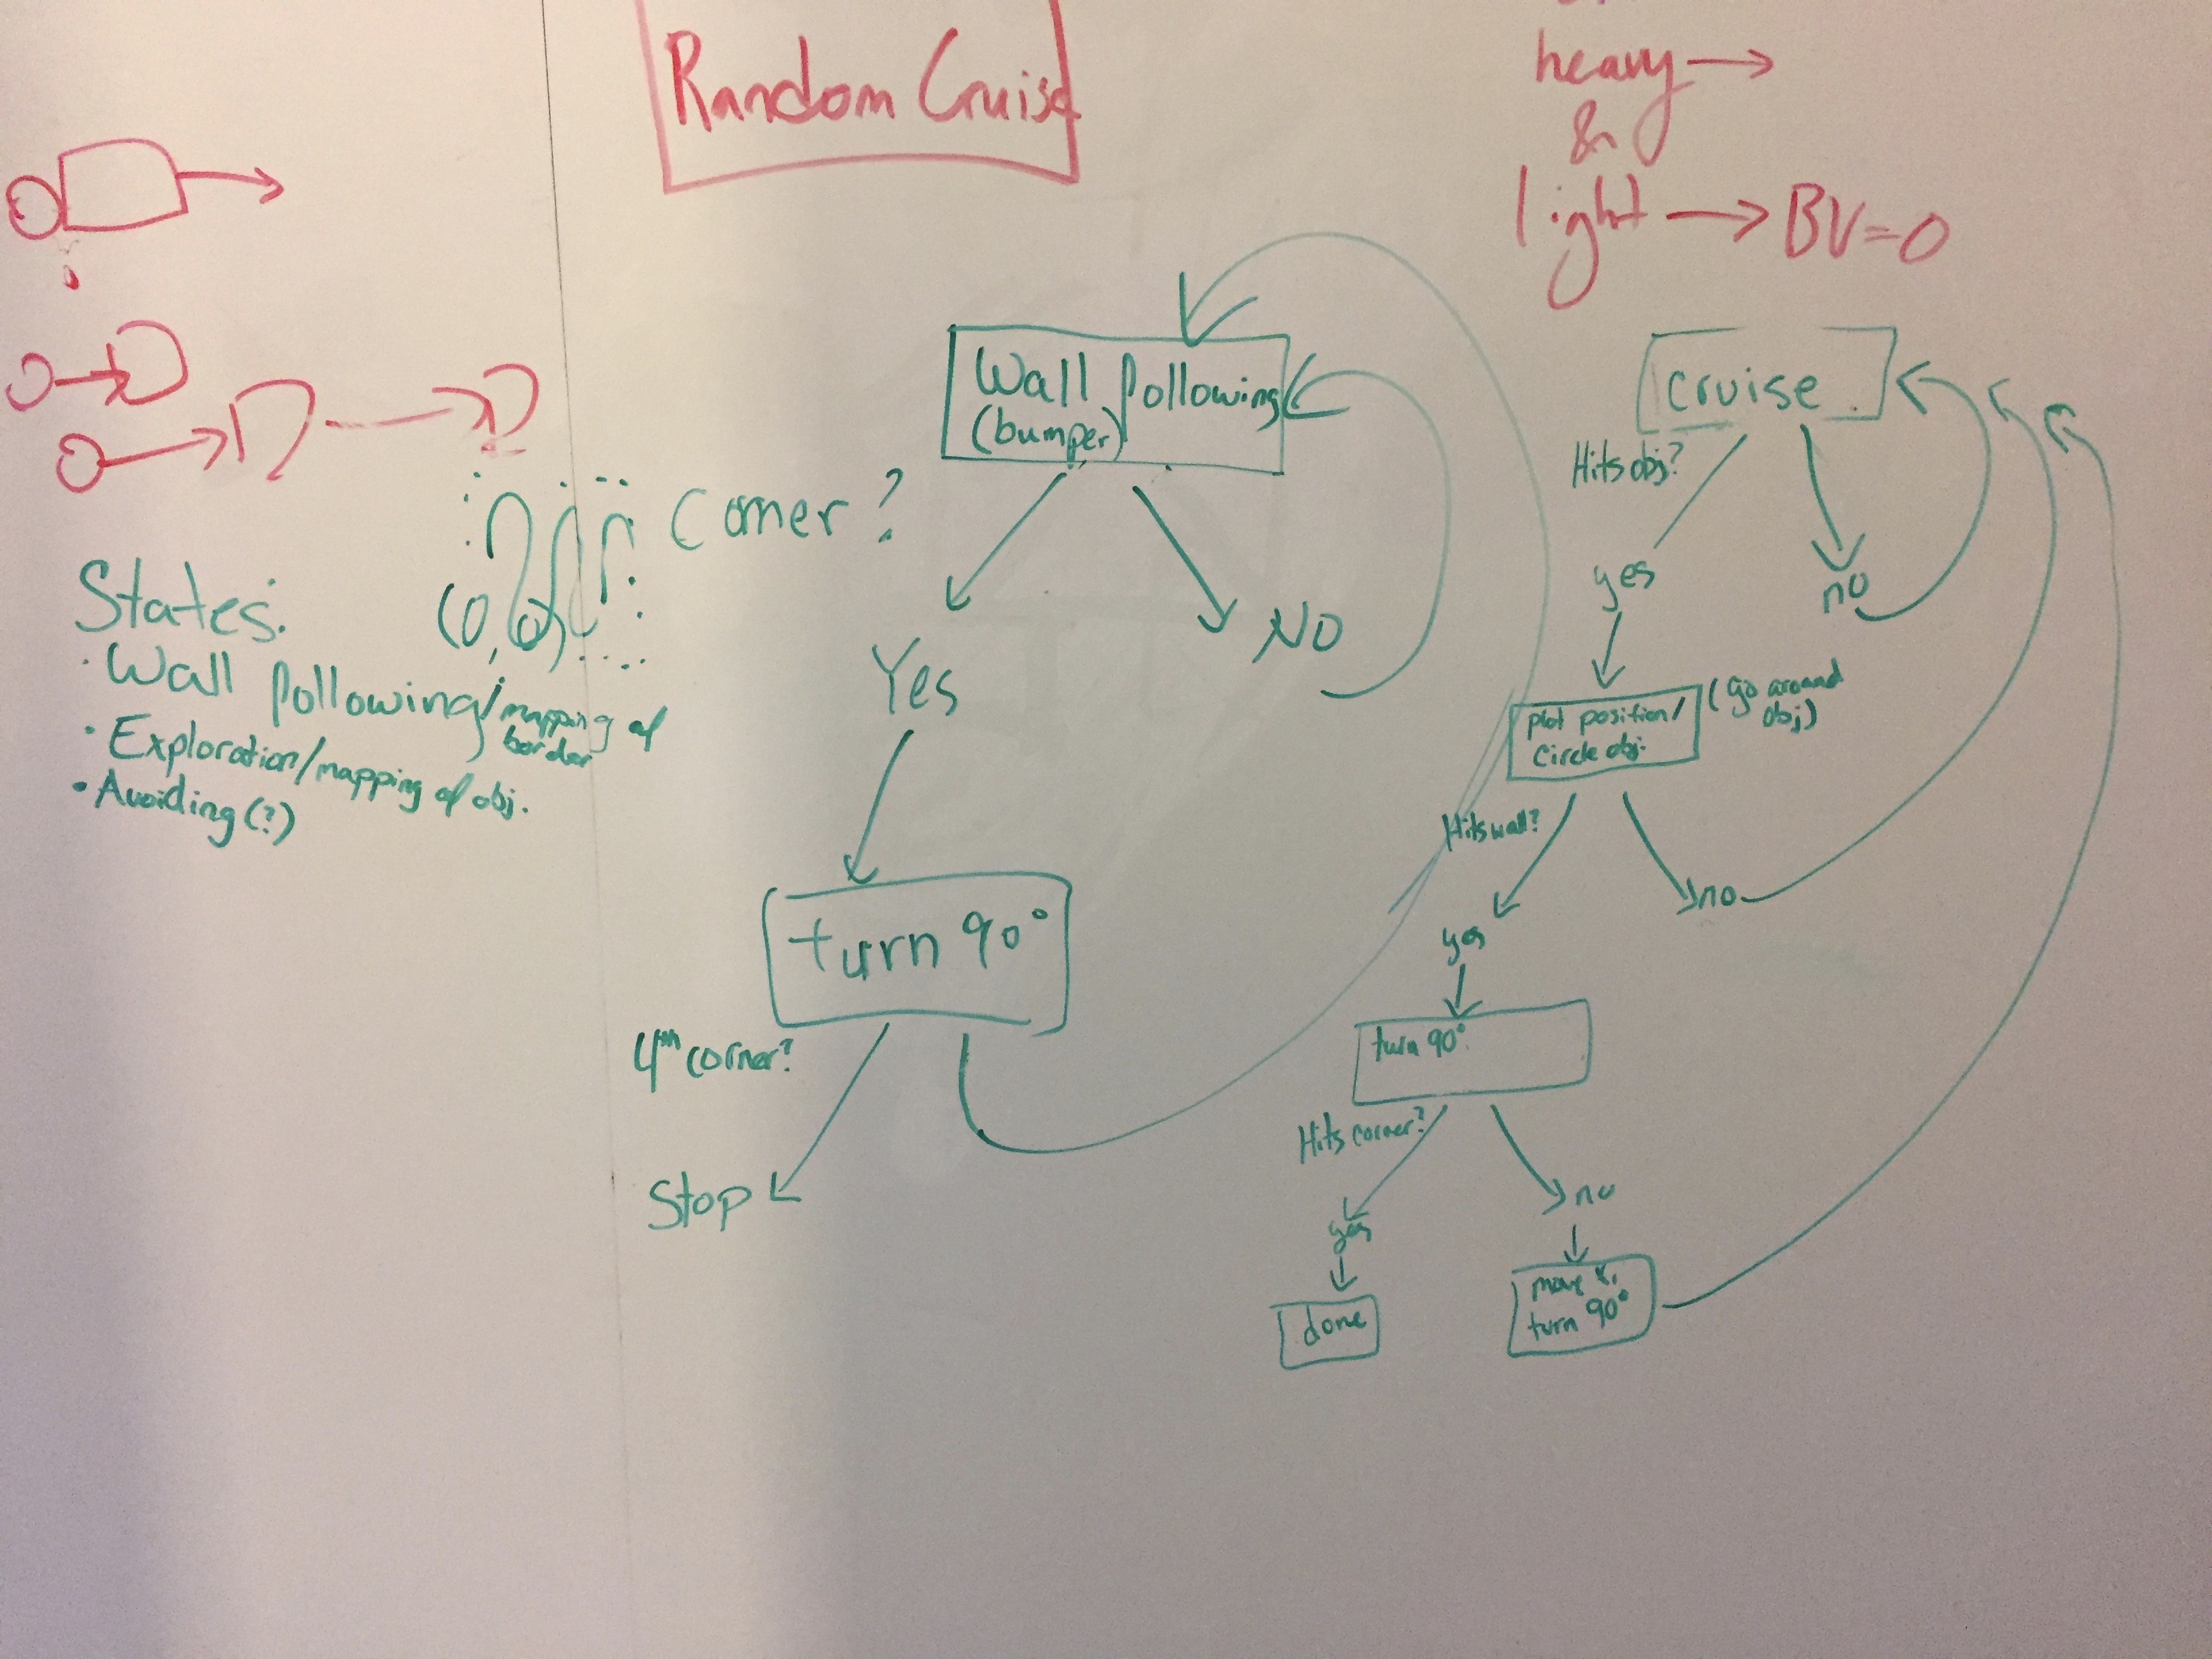 Random Cruise
heavy →
&
light → BV=0
States:
· Wall following/mapping of border
· Exploration/mapping of obj.
· Avoiding (?)
(0,0)
Wall following
(bumper)
Corner?
Yes
NO
turn 90°
4th corner?
Stop
cruise
Hits obj?
yes
no
plot position/
Circle obj.
(go around
obj)
Hits wall?
yes
no
turn 90°
Hits corner?
yes
no
done
move x,
turn 90°